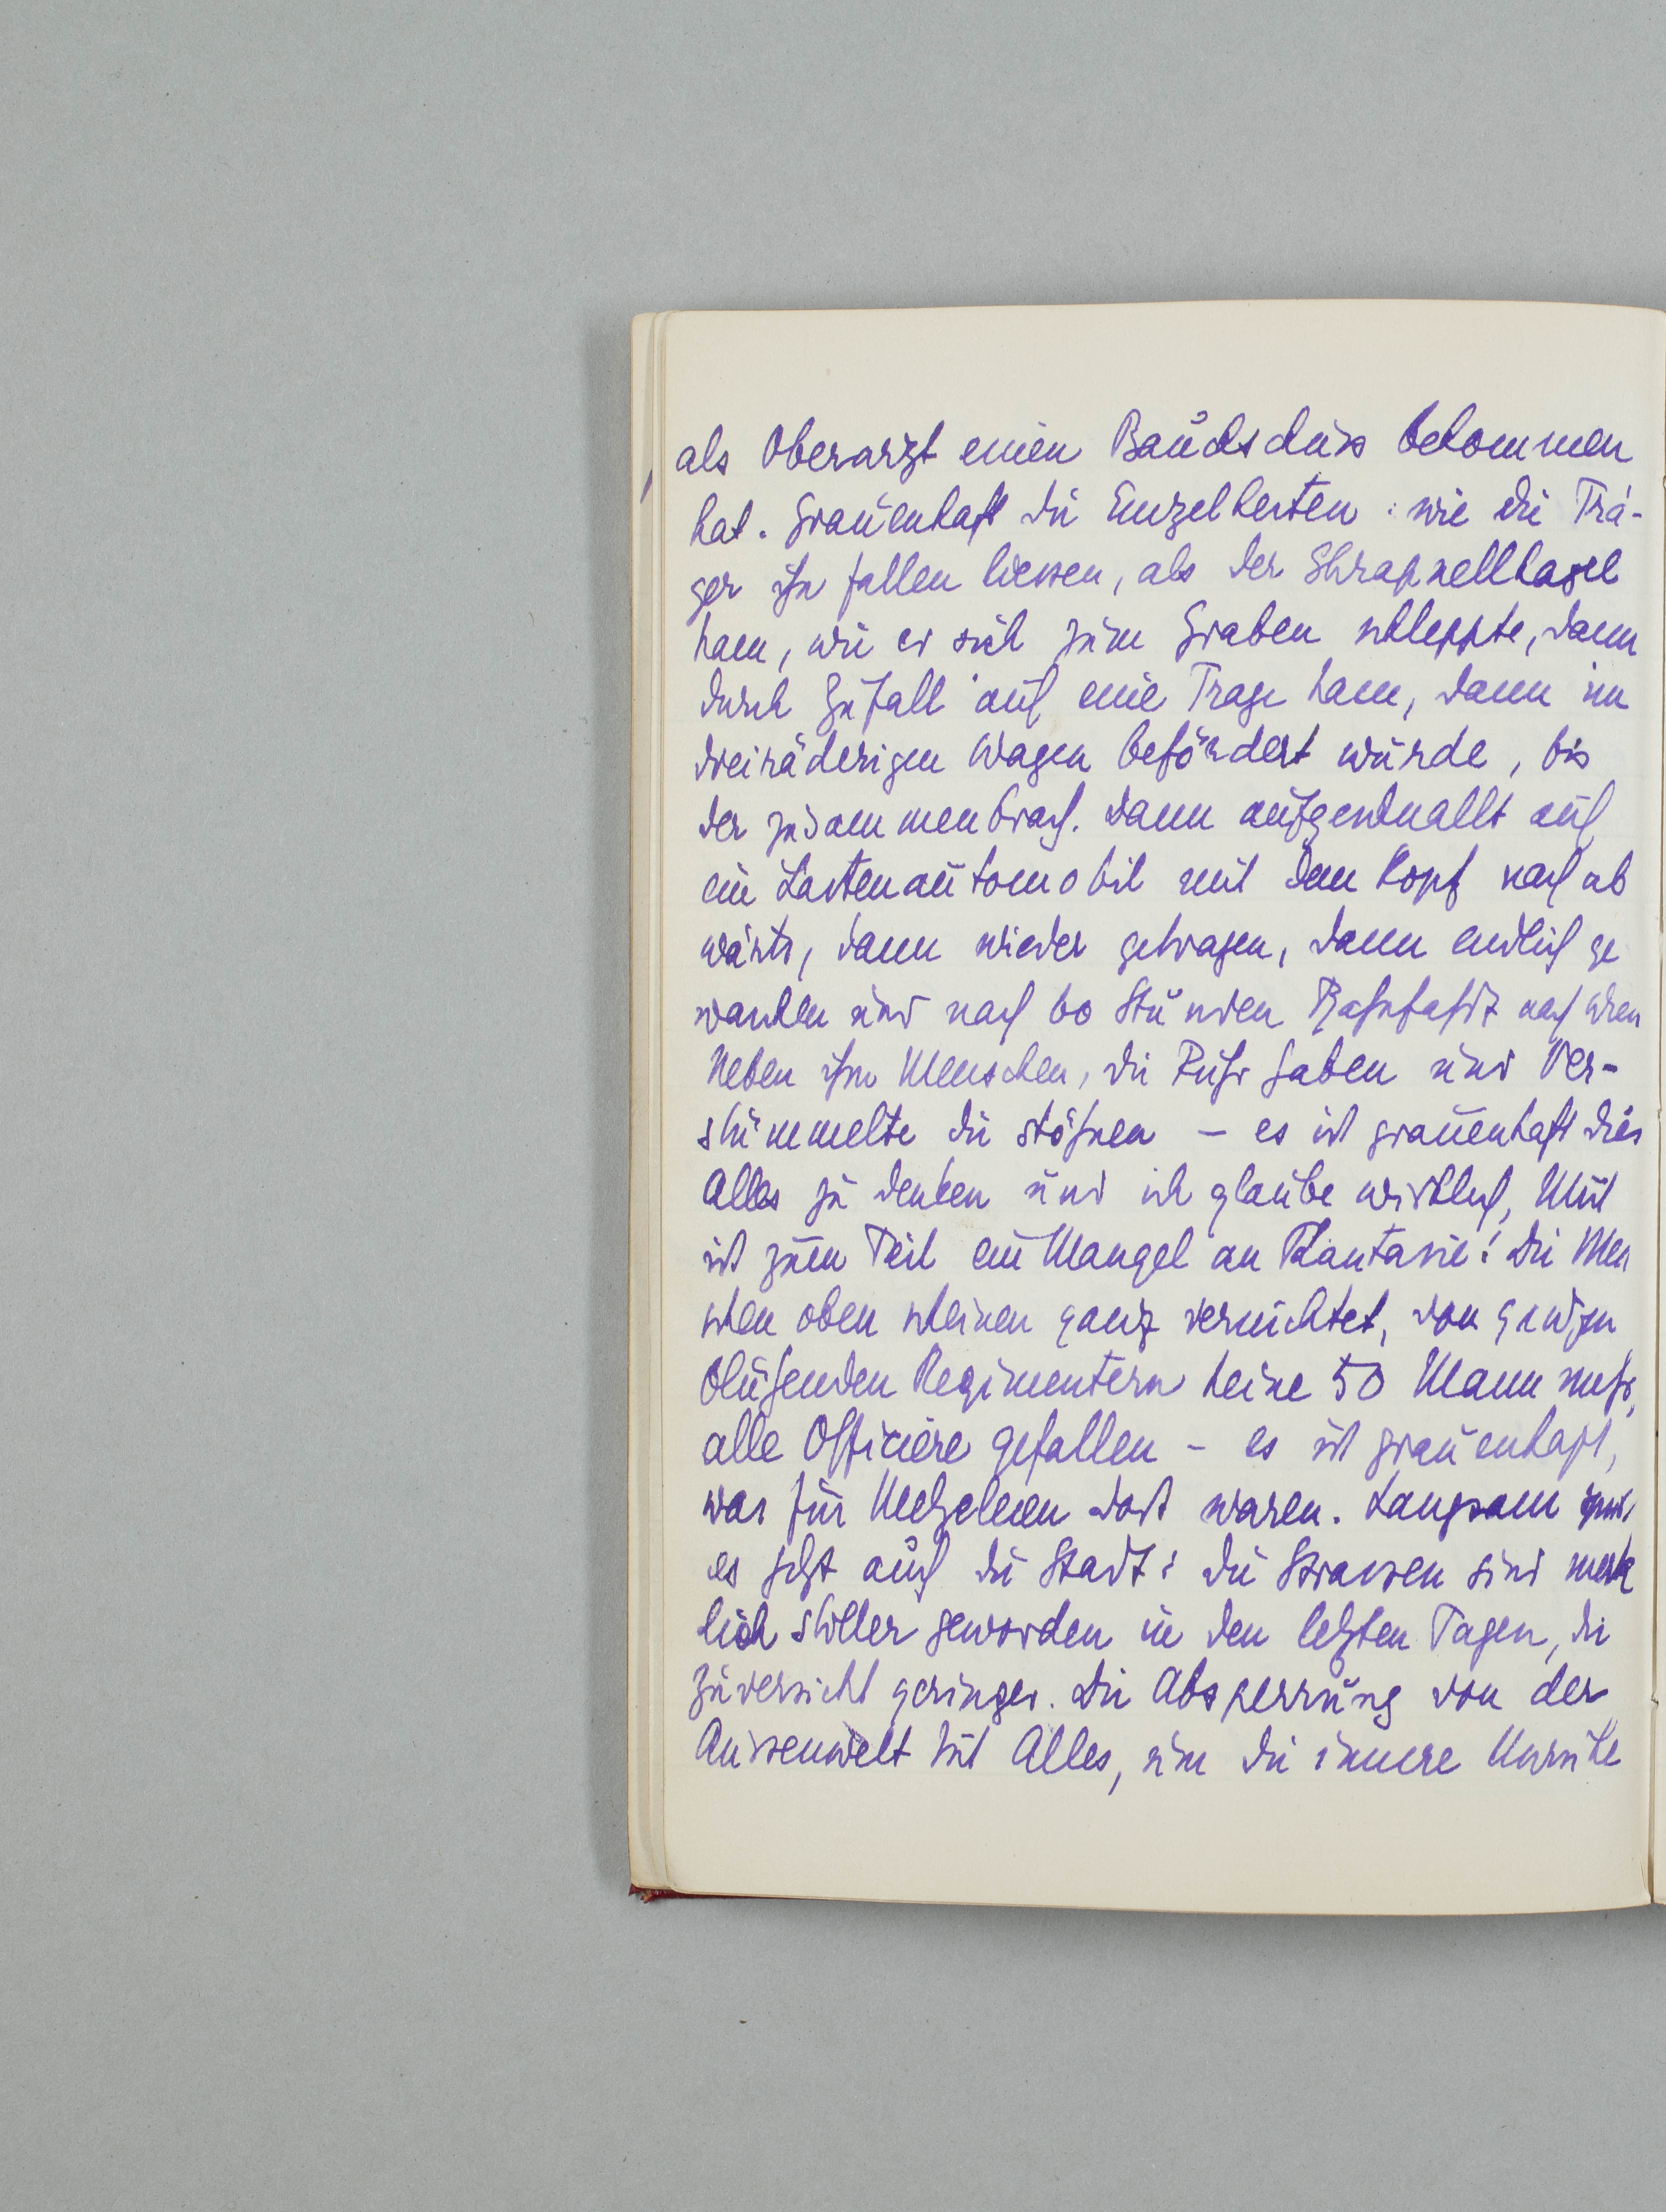 als Oberarzt einen Bauchschuss bekommen
hat. Grauenhaft die Einzelheiten: wie die Trä-
ger ihn fallen liessen, als der Shrapnellhagel
kam, wie er sich zum Graben schleppte, dann
durch Zufall auf eine Trage kam, dann im
dreiräderigen Wagen befördert wurde, bis
der zusammenbrach. Dann aufgeschnallt auf
ein Lastenautomobil mit dem Kopf nach ab
wärts, dann wieder getragen, dann endlich ge
waschen und nach 60 Stunden Bahnfahrt nach Wien
Neben ihm Menschen, die Ruhr haben und Ver-
stümmelte die stöhnen – es ist grauenhaft dies
Alles zu denken und ich glaube wirklich, Mut
ist zum Teil ein Mangel an Phantasie! Die Men
schen oben scheinen ganz vernichtet, von ganzen
blühenden Regimentern keine 50 Mann mehr,
alle Officiere gefallen – es ist grauenhaft,
was für Metzeleien dort waren. Langsam spürt
es jetzt auch die Stadt: die Strassen sind merk
lich stiller geworden in den letzten Tagen, die
Zuversicht geringer. Die Absperrung von der
Aussenwelt tut Alles, um die innere Unruhe